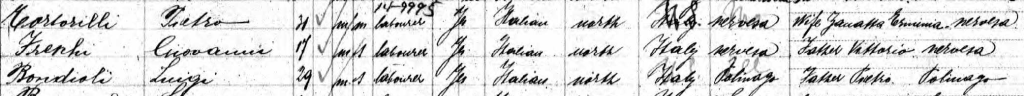 14-9995
Martorilli Pietro 21 m m labourer Yes Italian north Italy nervesa Wife Zanatta Erminia nervesa
Freschi Giovanni 17 m s labourer Yes Italian north Italy nervesa Father Vittorio nervesa
Bondioli Luigi 29 m s labourer Yes Italian north Italy Polinago Father Pietro Polinago